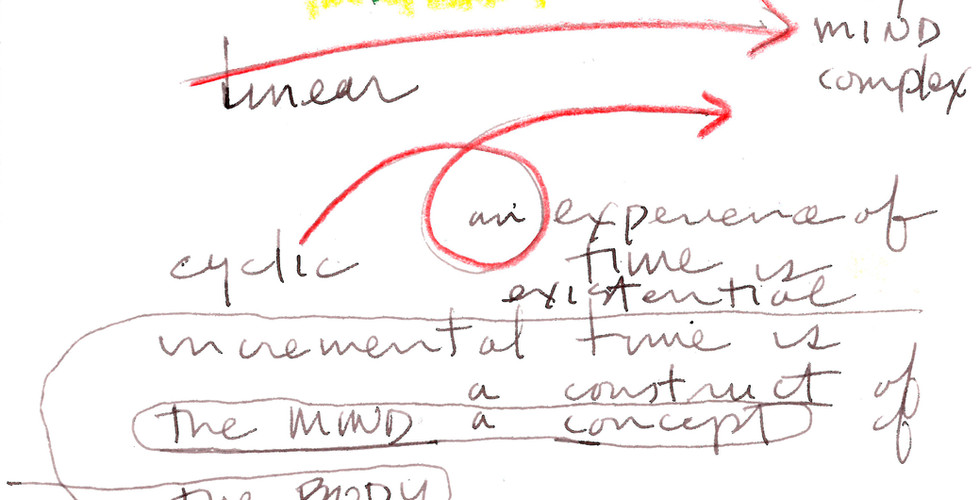 MIND
linear
complex
cyclic
an experience of
time is
existential
incremental time is
a construct of
the MIND a concept of
the BODY